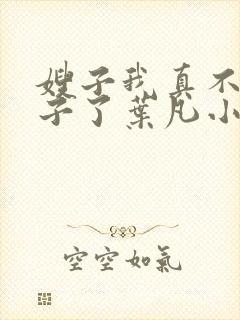 嫂子我真不
子了葉凡小
空空如氣